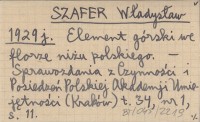 SZAFER Władysław
1929 j. Element górski we
florze niżu polskiego. —
Sprawozdania z Czynności i
Posiedzeń Polskiej Akademji Umie
jętności (Kraków) t. 34, nr 1,
s. 11.